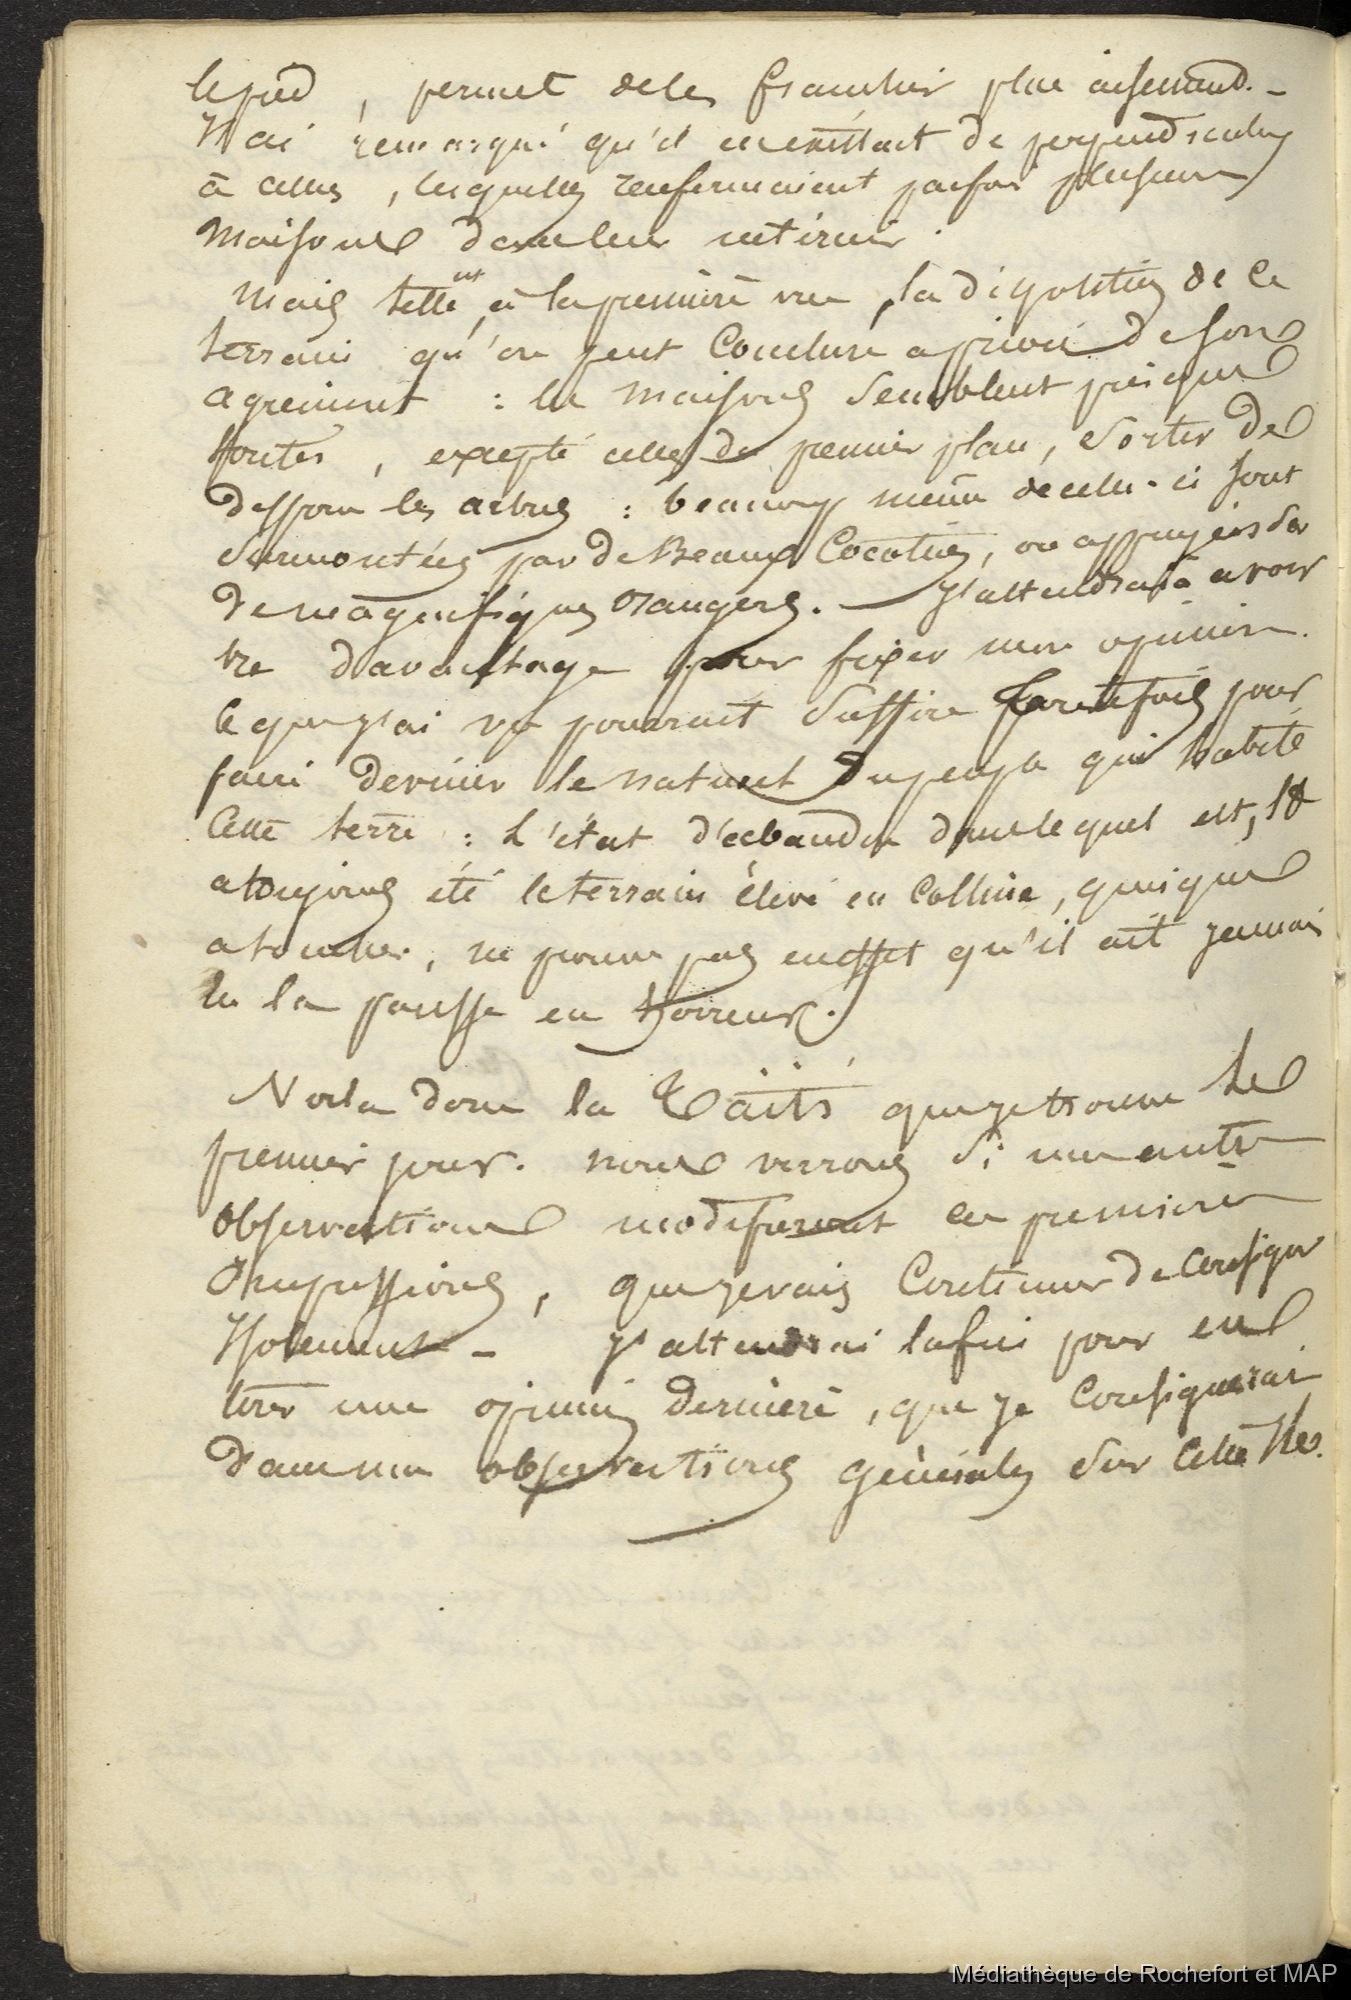 le pied, permet de les franchir plus aisement. -
J'ai remarqué qu'il en existait de perpendiculaires
à celles, lesquelles renfermaient parfois plusieurs
maisons dans leur intérieur.
Mais telle est, à la première vue, la disposition de ce
terrain qu'on peut conclure a priori de son
agrement : les maisons semblent presque
toutes, excepté celles du premier plan, sortir de
dessous les arbres : beaucoup même de celles-ci sont
surmontées par de Beaux Cocotiers, ou appuyées sur
de magnifiques Orangers. — J'attendrai à avoir
vu davantage pour fixer mon opinion.
Ce que j'ai vu pourrait suffire toutefois pour
faire deviner le naturel du peuple qui habite
Cette terre : L'état d'abandon dans lequel est, et
a toujours été le terrain élevé en colline, quoique
à toucher, ne prouve pas en effet qu'il ait jamais
eu la paresse en horreur.
Voila donc la Taïti que je trouve le
premier jour. Nous verrons si mes autres
observations modifieront ces premières
Impressions, que je vais continuer de consigner
Isolement - J'attendrai la fin pour en
tirer une opinion dernière, que je consignerai
dans mes observations générales sur cette Ile.
Médiathèque de Rochefort et MAP